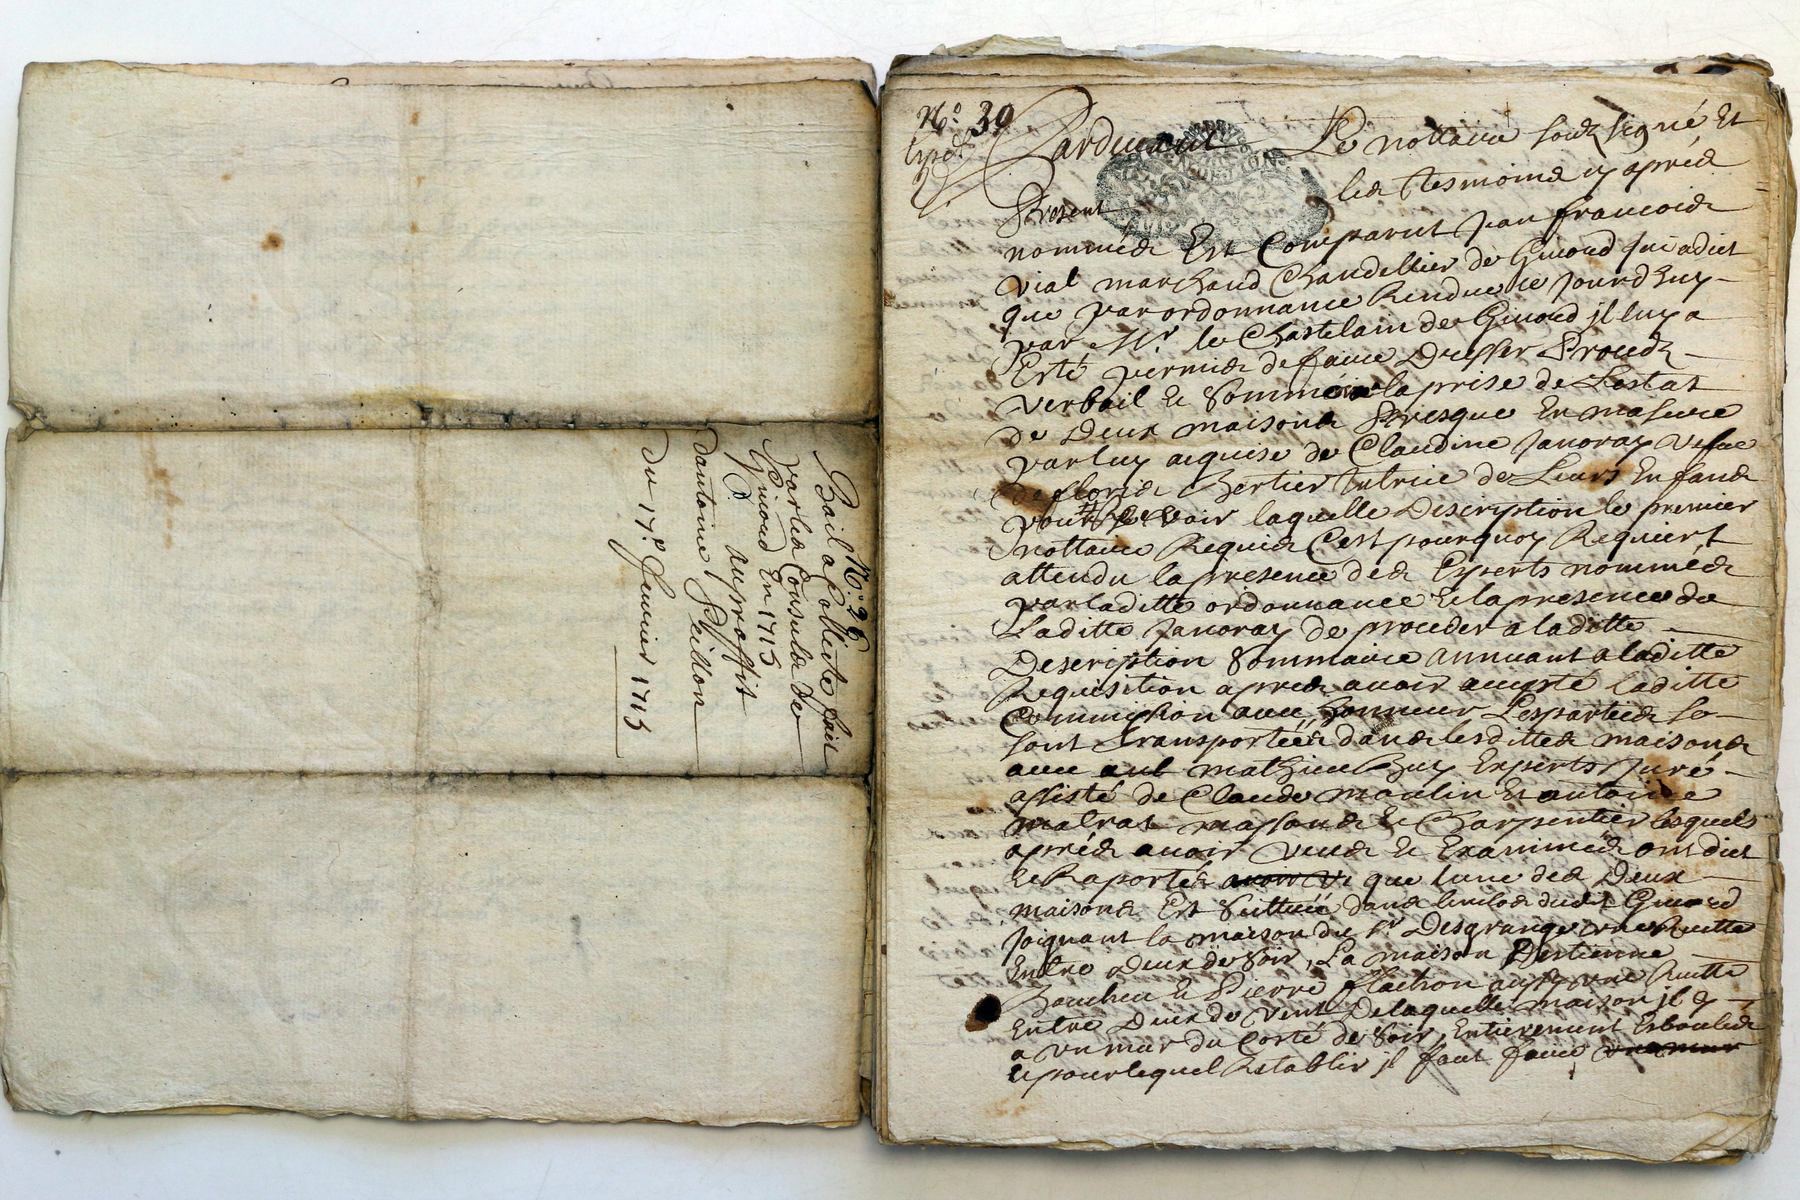 N.o 26
Bail a Collecte fait
par les Consuls de
Givord En 1715
au proffit
dantoine Peillon
du 17.e feurier 1715
N.o 30
Pardeuant Le nottaire souz signé Et
les tesmoins cy aprés
Present
nommés Est Comparut jean francois
vial marchand Chandellier de Giuord qui a dict
que par ordonnance Rendue ce jourdhuy
par Mr. le Chastelain de Giuord jl luy a
Esté permis de faire Dresser Procés
verbail Et Sommaire la prise de Lestat
de Deux maisons Presque En masure
par luy aquise de Claudine janoray vefue
de floris Bertier tutrice de Leurs Enfans
pour voir laquelle Description le premier
nottaire Requis Cest pourquoy Requiert
attendu la presence des Experts nommés
par laditte ordonnance Et la presence de
Laditte janoray de proceder a laditte
Description Sommaire annuant a laditte
Requisition apres auoir accepté laditte
Commission auec honneur Les parties se
sont transportées dans lesdittes maisons
auec mathieu Experts juré
assisté de Claude moulin Et antoine
malrat massons Et Charpentier lesquels
aprés auoir veues Et Examinés ont dict
Et Raportés que lune des Deux
maisons Est Sittuée dans dudit Giuord
joignant la maison du sr. Desgrange une Ruette
Entre Deux de Soir, La maison Destienne
Boucheu Et Pierre flachon aussy une Ruette
Entre Deux de vent De laquelle maison jl y
a vn mur du Costé de Soir, Entierement Esboulés
Et pour lequel Restablir jl faut faire